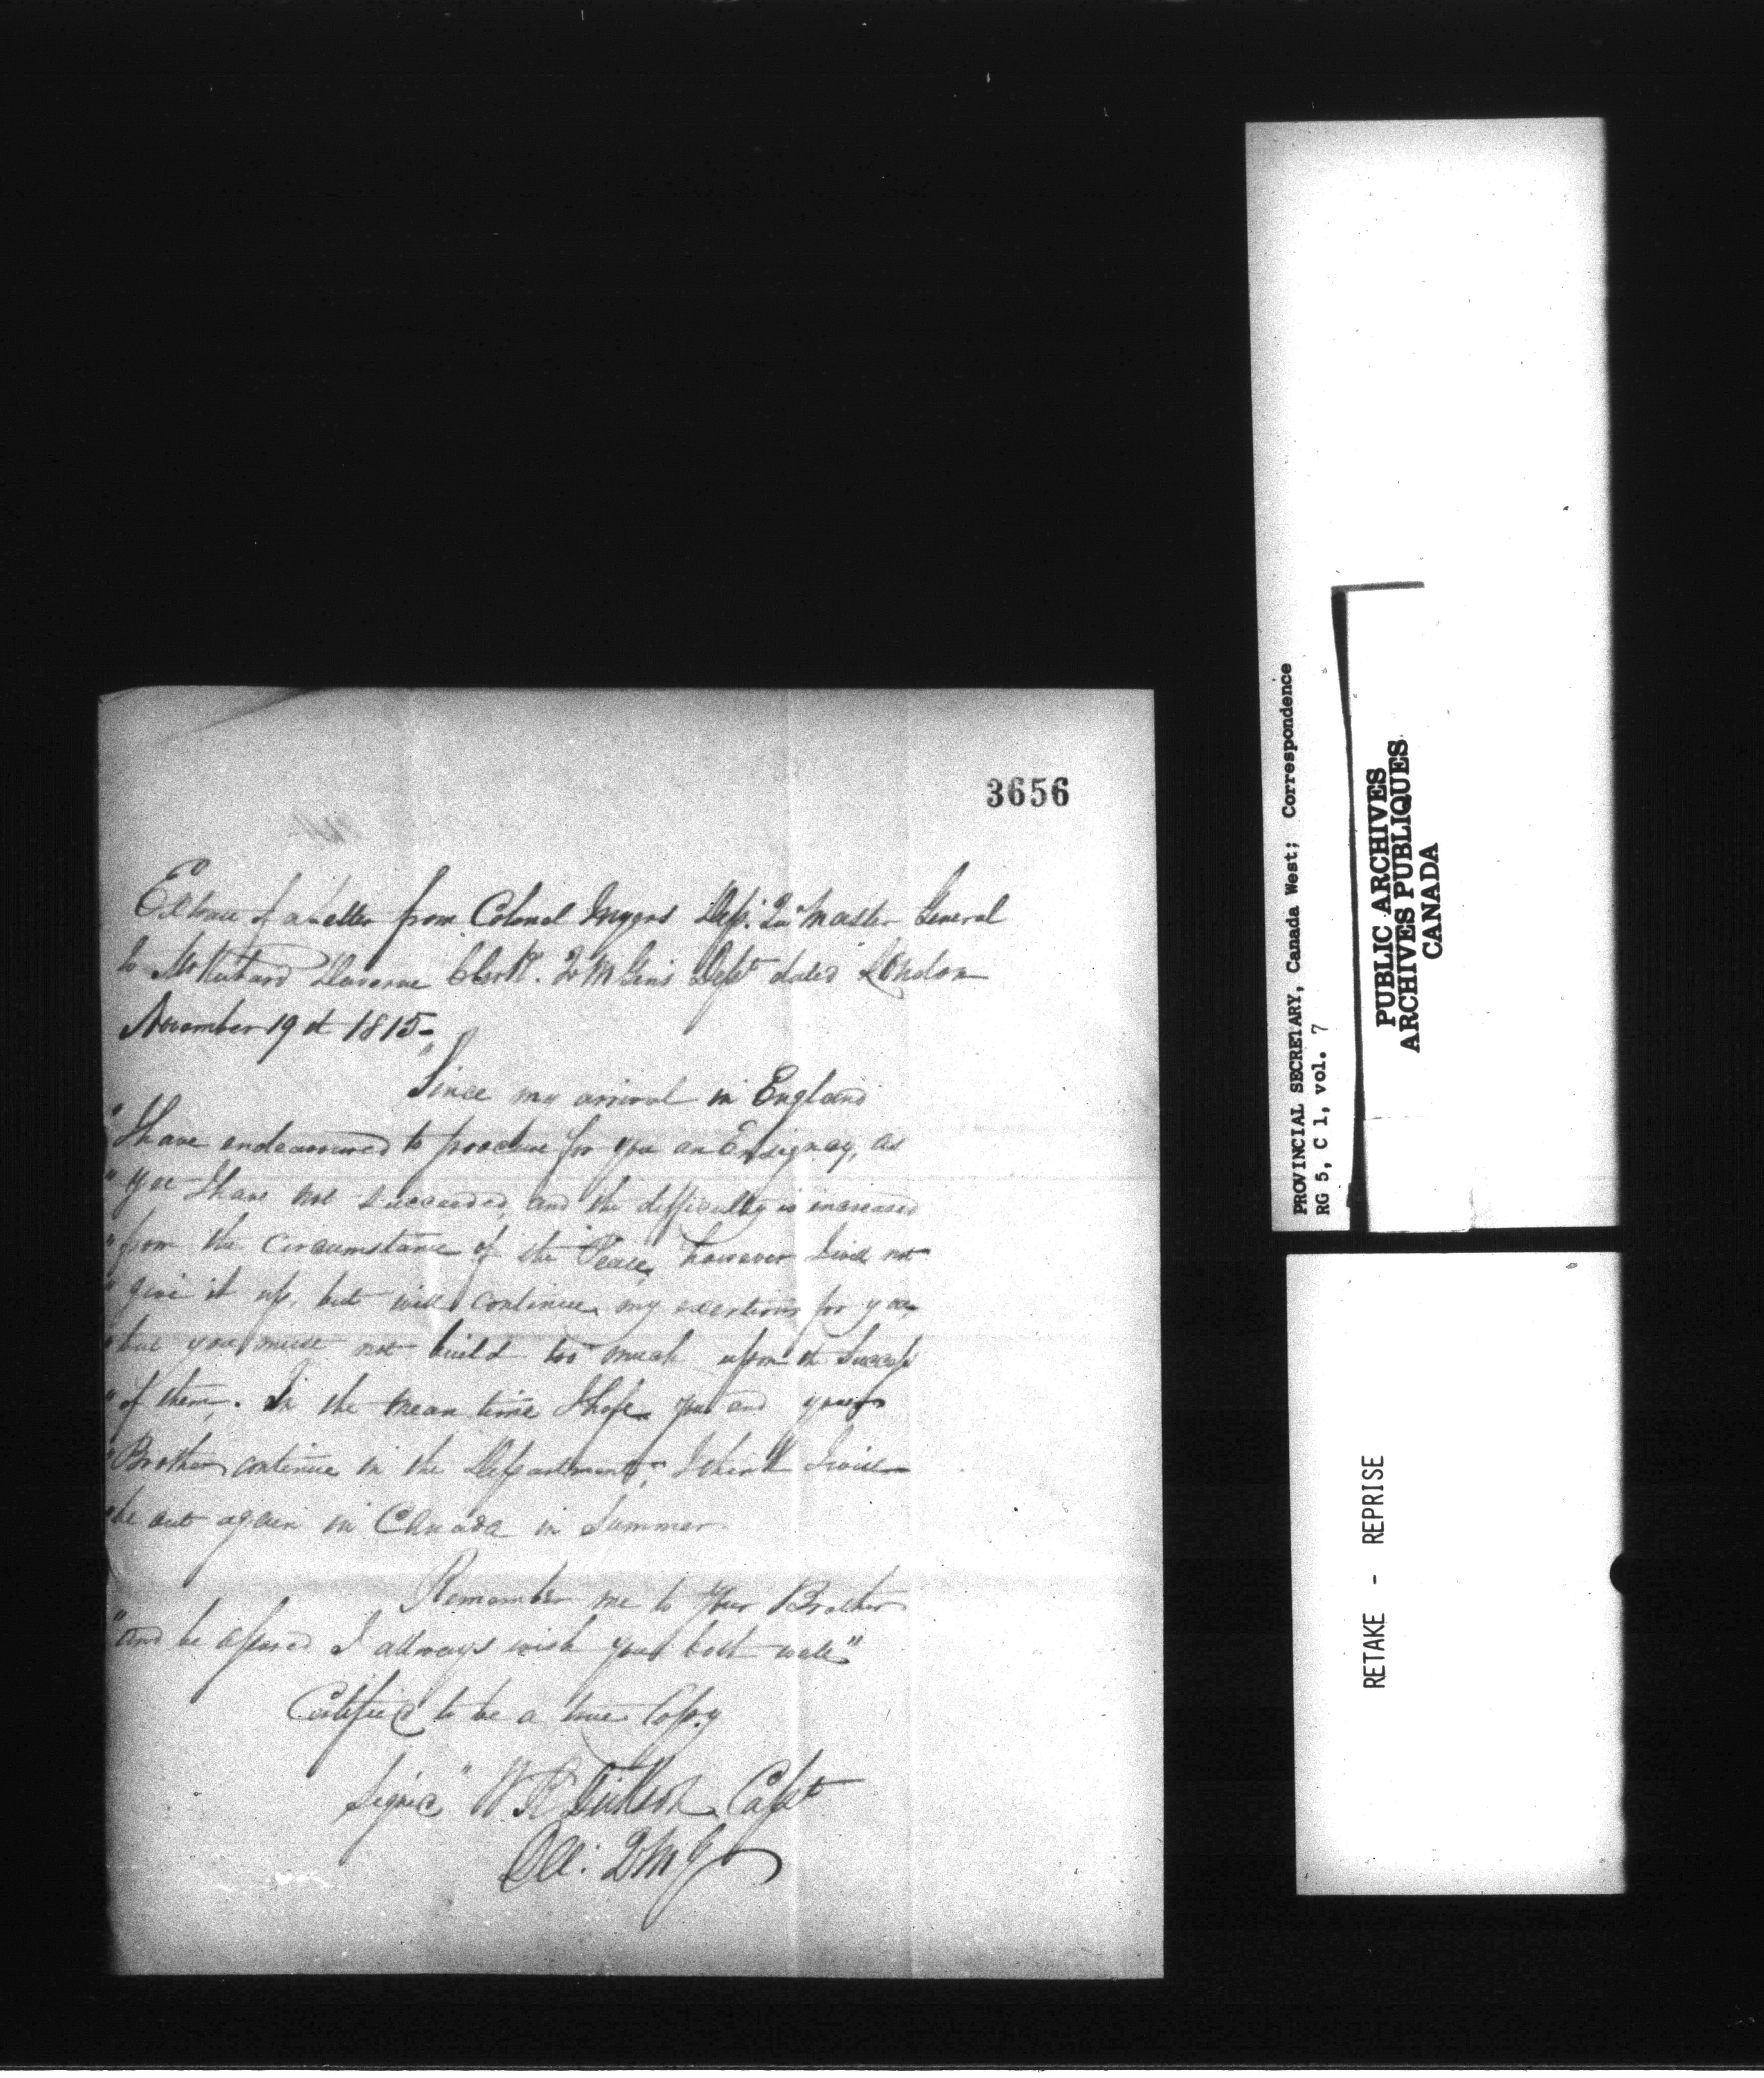 3656
Extract of a Letter from Colonel Myers Dep. Qr Master General
to Mr Richard Duverne Clerk. Q M Gen's Dept dated London
November 19 st 1815-
"Since my arrival in England
"I have endeavoured to procure for you an Ensigncy, as
"yet I have not succeeded, and the difficulty is increased
"from the circumstance of the Peace, however I will not
"give it up, but will continue my exertions for you,
"but you must not build too much upon the success
"of them. In the mean time I hope you and your
"Brother continue in the Department, I think I will
"be out again in Canada in Summer.
Remember me to your Brother
"and be assured I allways wish you both well"
Certified to be a true Copy
Signed " W R Capt
QMG
PROVINCIAL SECRETARY, Canada West; Correspondence
RG 5, C 1, vol. 7
PUBLIC ARCHIVES
ARCHIVES PUBLIQUES
CANADA
RETAKE - REPRISE